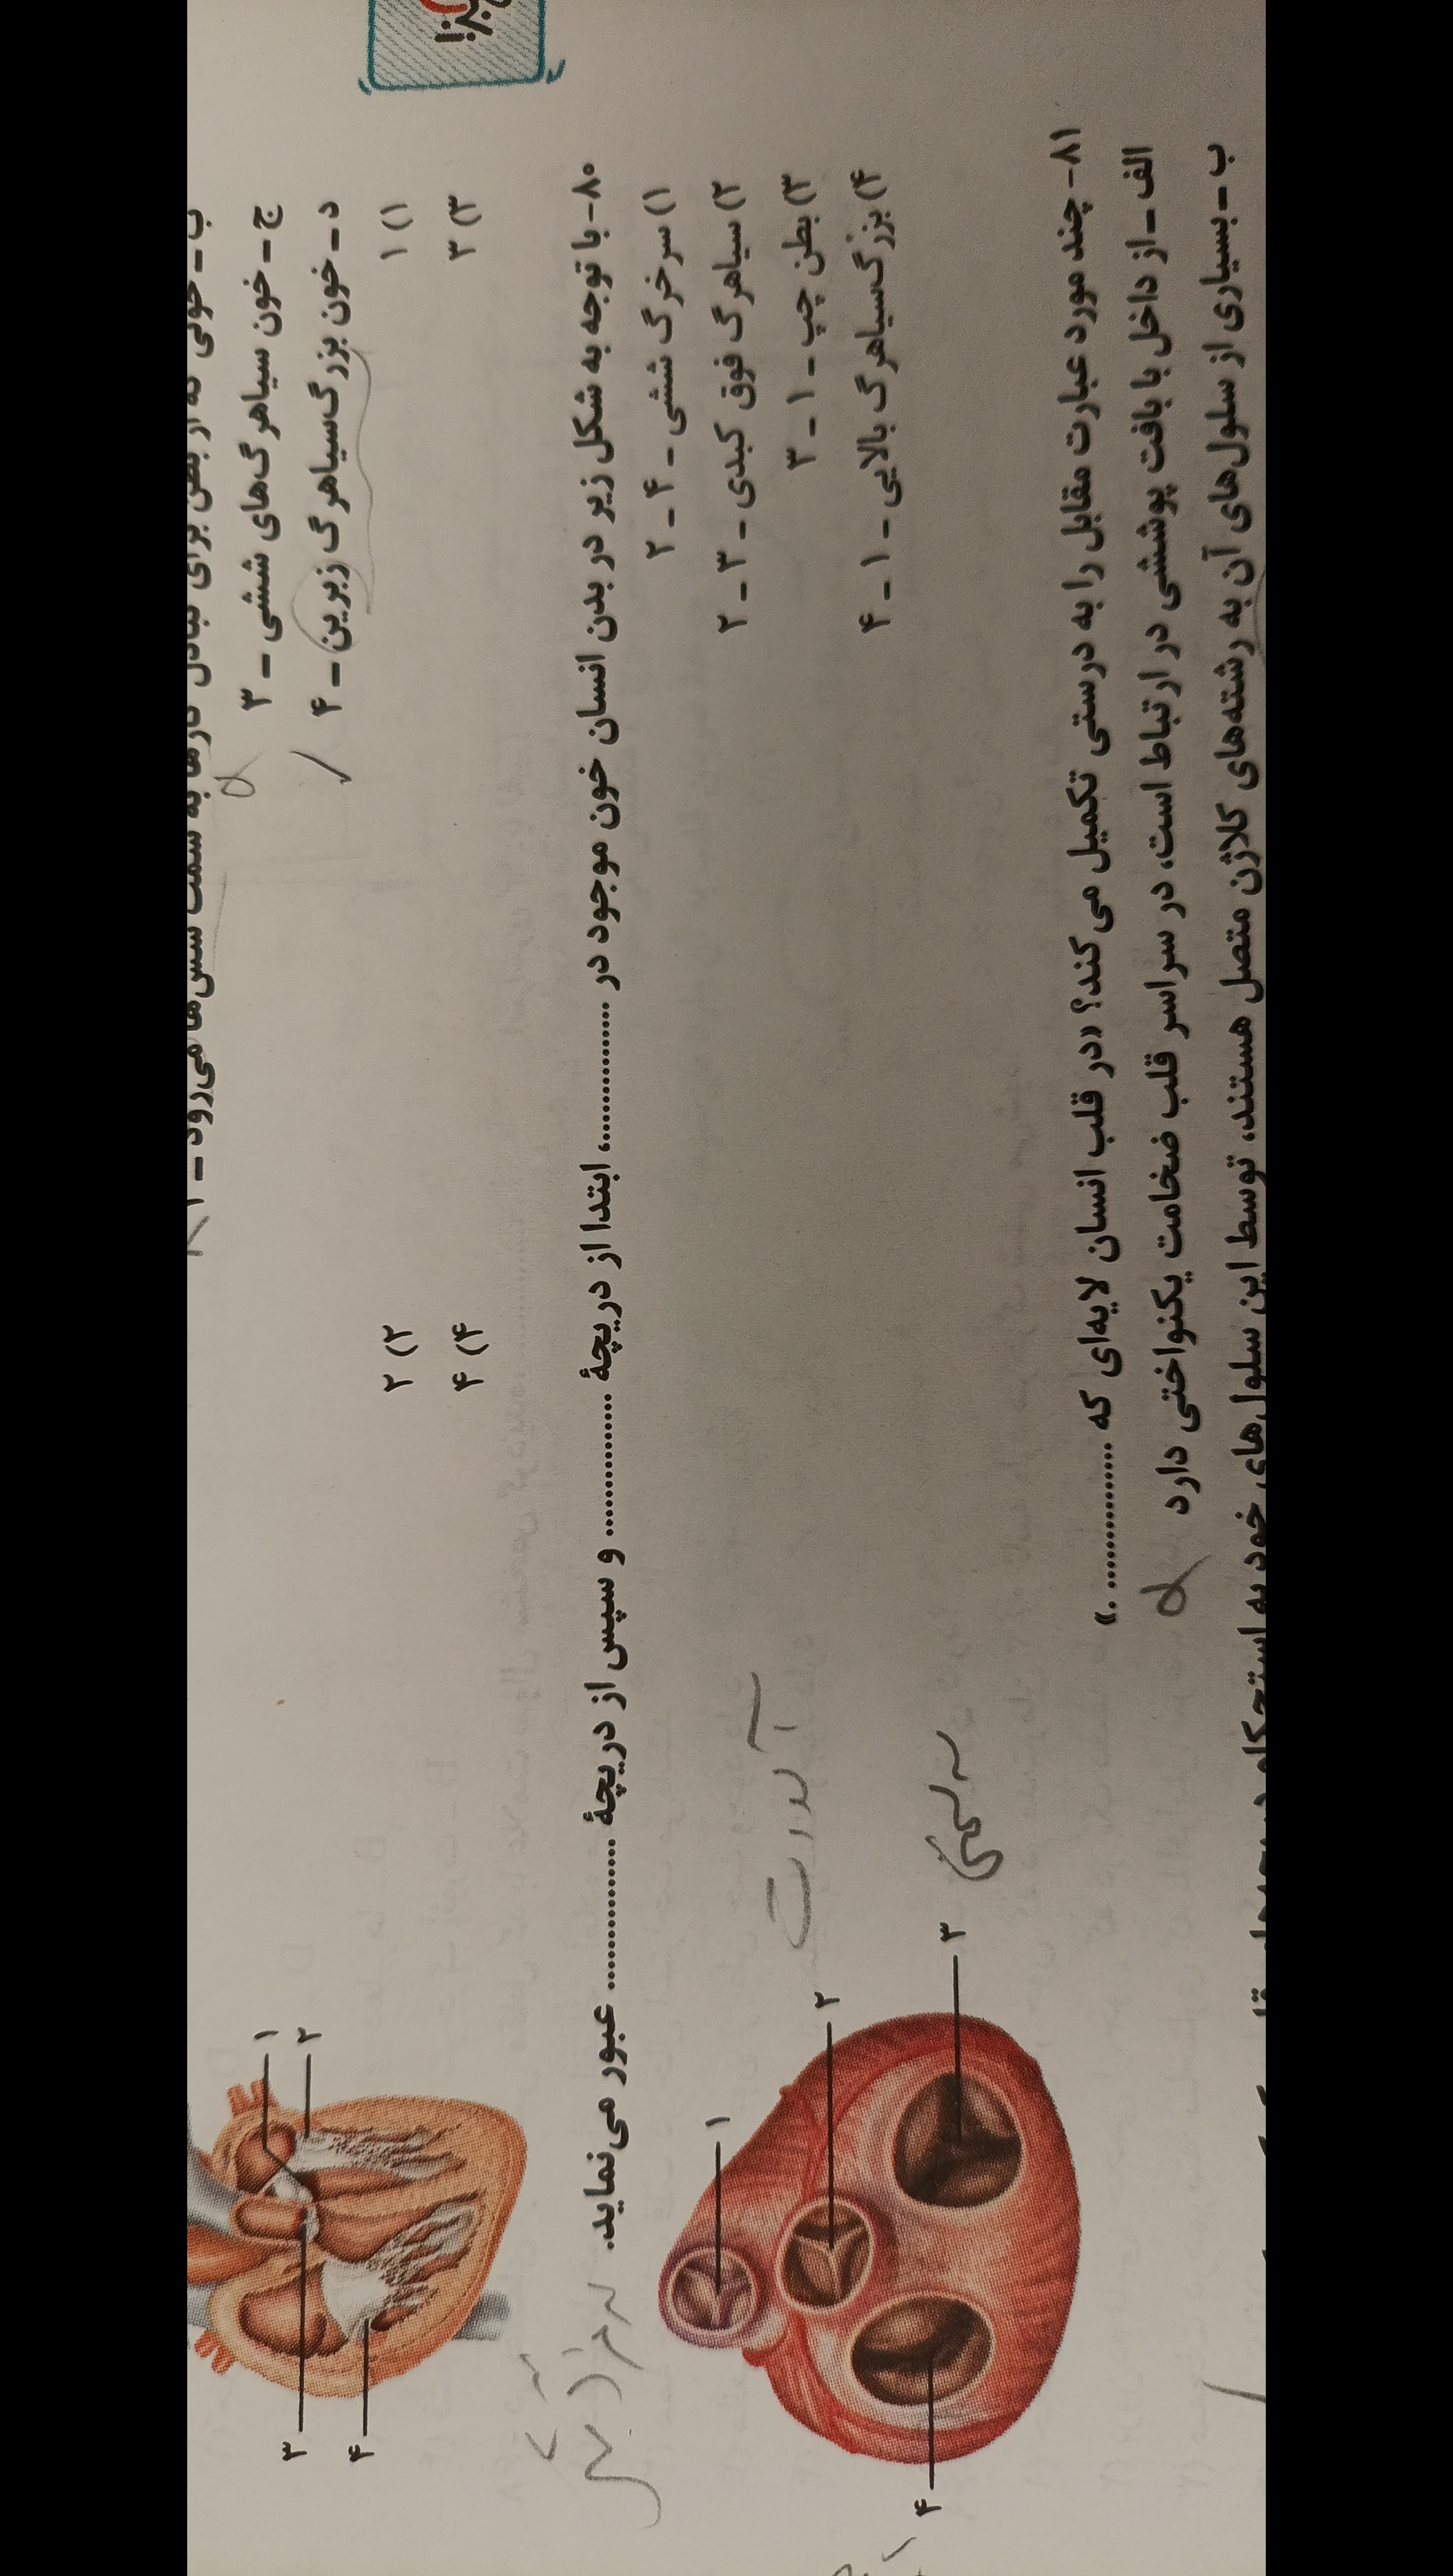 ج – خون سیاهرگ‌های ششی – ۳
د – خون بزرگ‌سیاهرگ زیرین – ۴
۱) ۱
۲) ۲
۳) ۳
۴) ۴
۱
۲
۳
۴
۸۰- با توجه به شکل زیر در بدن انسان خون موجود در ..............، ابتدا از دریچهٔ .............. و سپس از دریچهٔ .............. عبور می‌نماید.
۱) سرخرگ ششی – ۴ – ۲
۲) سیاهرگ فوق کبدی – ۳ – ۲
۳) بطن چپ – ۱ – ۳
۴) بزرگ‌سیاهرگ بالایی – ۱ – ۴
۱
۲
۳
۴
آئورت
۸۱- چند مورد عبارت مقابل را به درستی تکمیل می‌کند؟ «در قلب انسان لایه‌ای که .............. .»
الف – از داخل با بافت پوششی در ارتباط است، در سراسر قلب ضخامت یکنواختی دارد
ب – بسیاری از سلول‌های آن به رشته‌های کلاژن متصل هستند، توسط این سلول‌های خود به استحکام